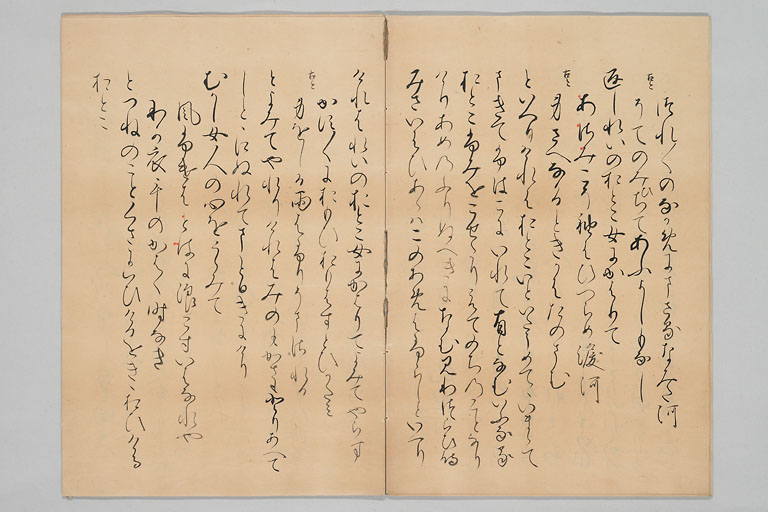 つれ〱のなかめにまさるなみた河
古今
そてのみひちてあふよしもなし
返しれいのおとこ女にかはりて
あさみこそ袖はひつらめ涙河
古今
身さへなかるときかはたのまむ
といへりけれはおとこいといたうめてゝいまゝて
まきてふはこにいれて有となむいふなる
おとこふみをこせたりえてのちのことなり
けりあめのふりぬへきになむ見わつらひ侍
みさいはひあらはこのあめはふらしといへり
けれはれいのおとこ女にかはりてよみてやらす
かす〱におもひおもはすとひかたみ
古今
身をしる雨はふりそまされる
とよみてやれりけれはみのもかさもとりあへて
しとゝにぬれてまとひきにけり
むかし女人の心をうらみて
風ふけはとはに浪こすいはなれや
わか衣手のかはく時なき
とつねのことくさにいひけるをきゝおひける
おとこ